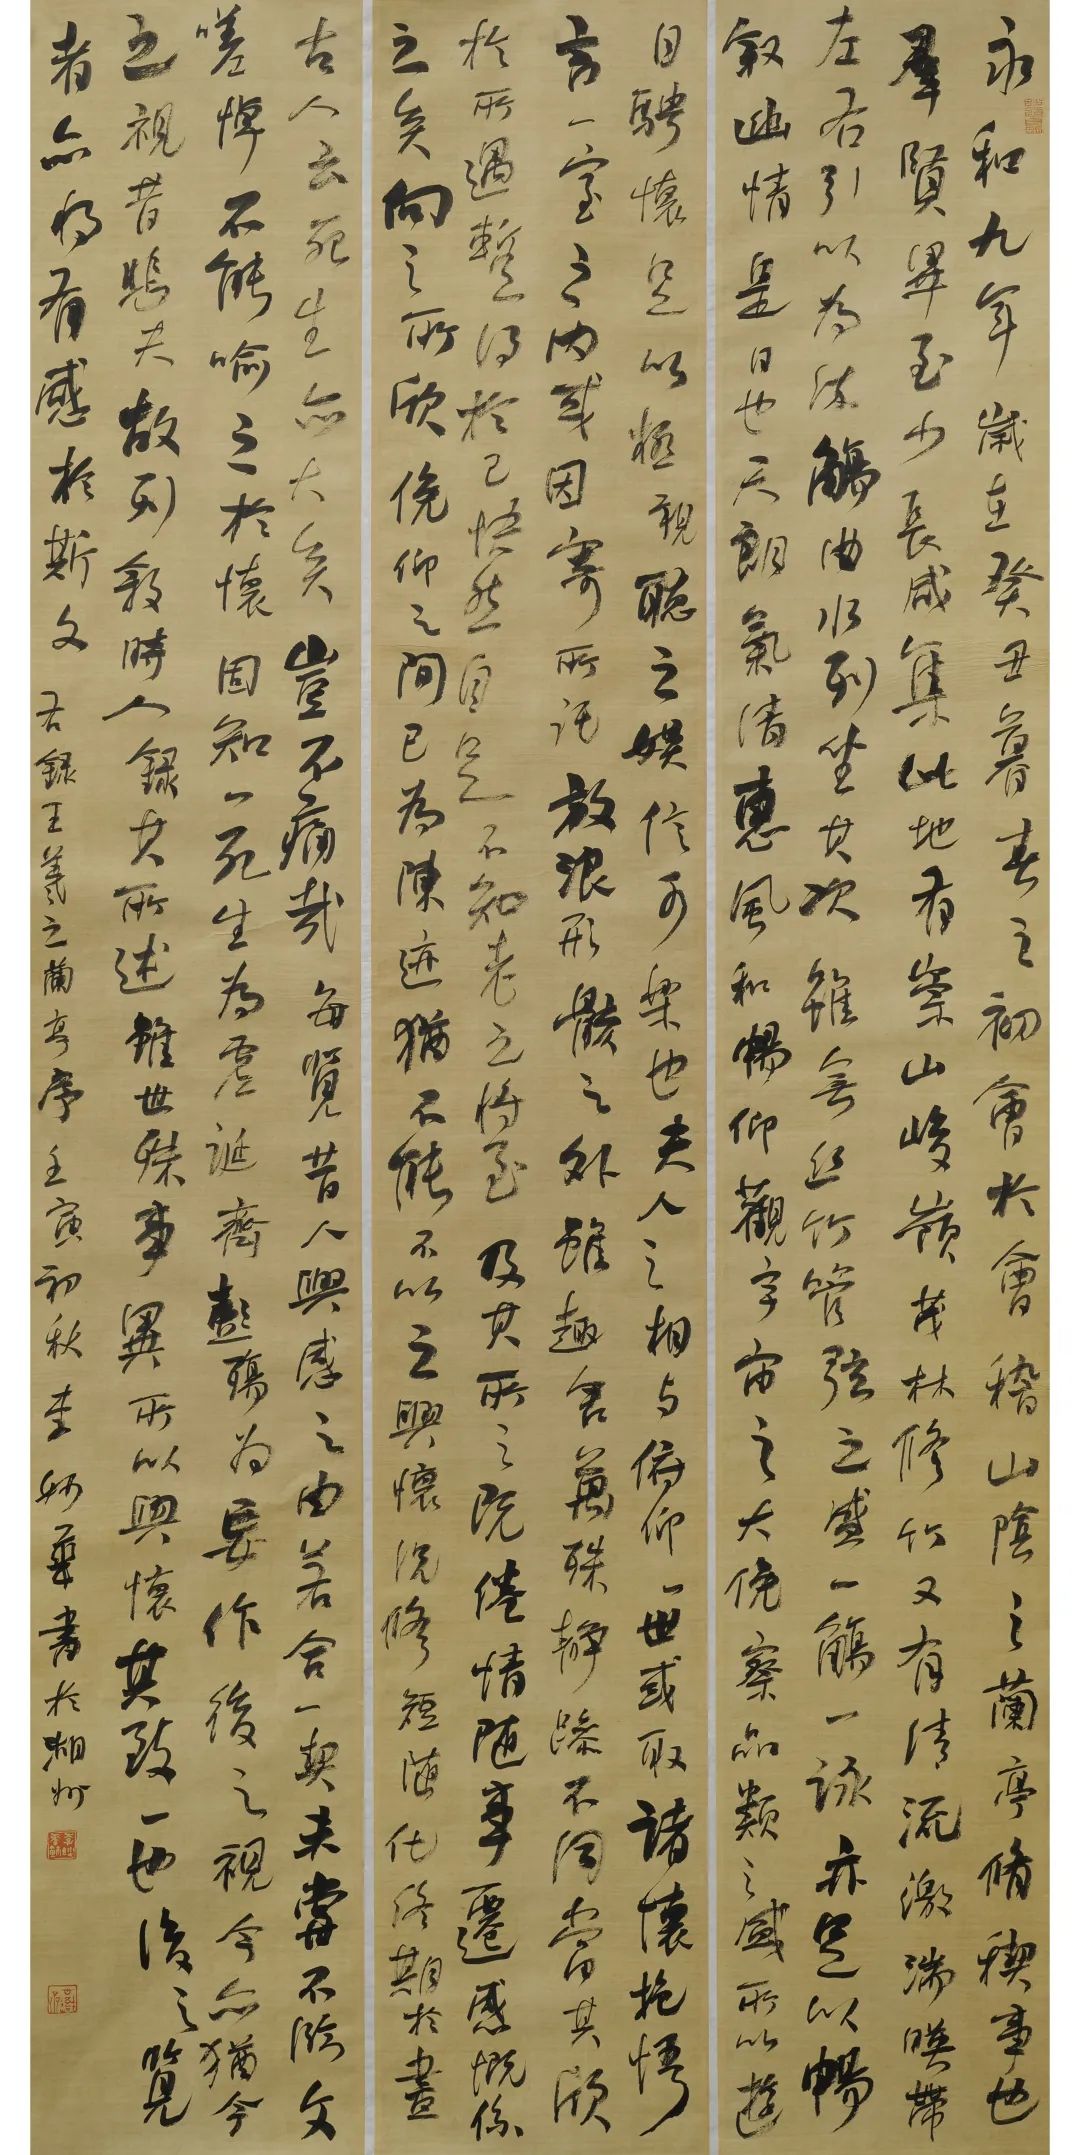 永和九年歲在癸丑暮春之初會於會稽山陰之蘭亭脩稧事也
羣賢畢至少長咸集此地有崇山峻嶺茂林修竹又有清流激湍暎帶
左右引以為流觴曲水列坐其次雖無絲竹管弦之盛一觴一詠亦足以暢
敘幽情是日也天朗氣清惠風和暢仰觀宇宙之大俛察品類之盛所以遊
目騁懷足以極視聽之娛信可樂也夫人之相與俯仰一世或取諸懷抱悟
言一室之內或因寄所託放浪形骸之外雖趣舍萬殊靜躁不同當其欣
於所遇暫得於己怏然自足不知老之將至及其所之既倦情隨事遷感慨係
之矣向之所欣俛仰之間已為陳迹猶不能不以之興懷況脩短隨化終期於盡
古人云死生亦大矣豈不痛哉每覽昔人興感之由若合一契未嘗不臨文
嗟悼不能喻之於懷固知一死生為虛誕齊彭殤為妄作後之視今亦猶今
之視昔悲夫故列敘時人錄其所述雖世殊事異所以興懷其致一也後之覽
者亦將有感於斯文 右錄王羲之蘭亭序壬寅初秋李 華書於湖州